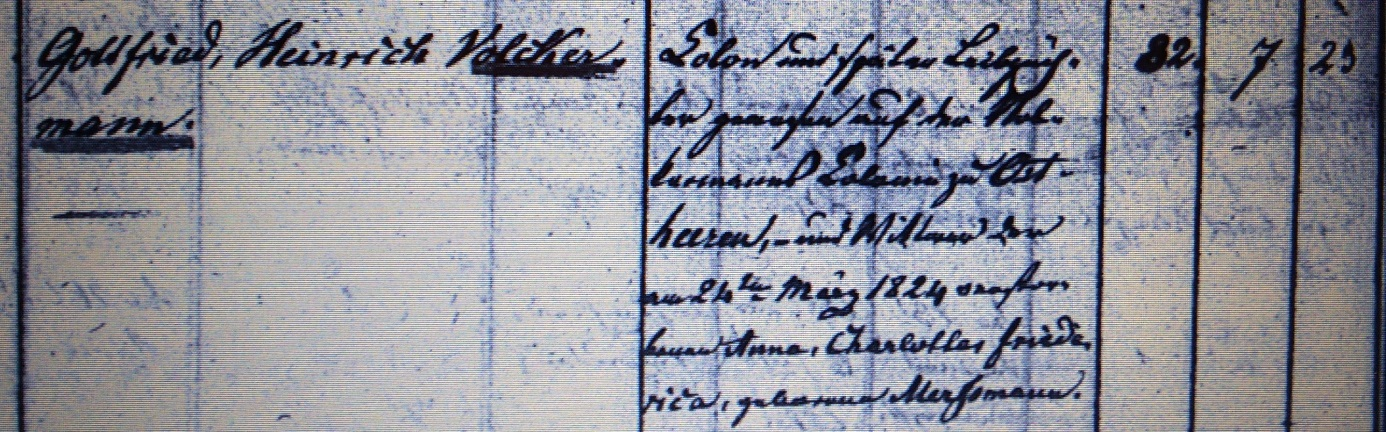 Gottfried, Heinrich Volcker-
mann.
Colon und später Leibzüch-
ter gewesen auf der Vol-
kermanns Colonie zu Ost-
heeren, - und Wittwer der
am 24ten März 1824 verstor-
benen Anna, Charlotta, Friede-
rica, geborene Merssmann.
82. 7 23